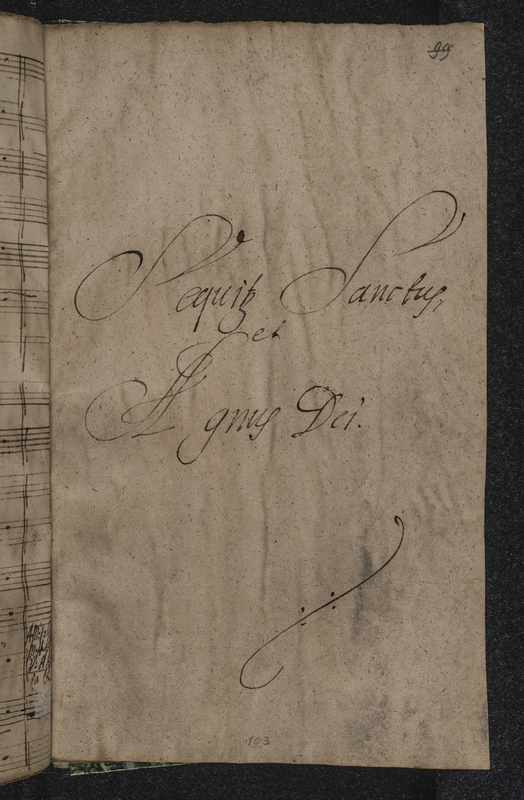 99
Sequitr Sanctus,
et
Agnus Dei.
193